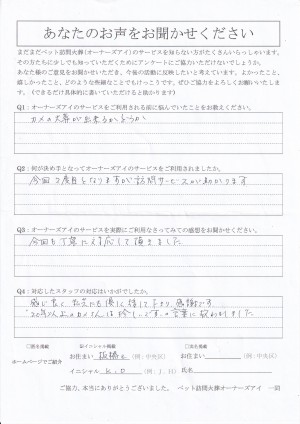 あなたのお声をお聞かせください
まだまだペット訪問火葬(オーナーズアイ)のサービスを知らない方がたくさんいらっしゃいます。
その方たちに少しでも知っていただくためにアンケートにご協力いただけないでしょうか。
あなた様のご意見をお聞かせいただき、今後の活動に反映したいと考えています。よかったこと、
嬉しかったこと、どのような些細なことでもけっこうです。ぜひご協力をよろしくお願いいたしま
す。(できるだけ具体的に書いていただけると助かります)
Q1：オーナーズアイのサービスをご利用される前に悩んでいたことをお教えください。
カメの火葬が出来るかどうか
Q2：何が決め手となってオーナーズアイのサービスをご利用されましたか。
今回2度目となりますが訪問サービスが助かります
Q3：オーナーズアイのサービスを実際にご利用なさってみての感想をお聞かせください。
今回も丁寧に対応して頂きました
Q4：対応したスタッフの対応はいかがでしたか。
感じ良く、先生にも優しく接して下さり、感謝です
"20年以上のカメさんは珍しいです"の言葉に救われました
□匿名掲載 ☑イニシャル掲載 □実名掲載
お住まい 板橋区 (例：中央区) お住まい (例：中央区)
ホームページでご紹介
イニシャル K.O (例：J.H) 氏名
ご協力、本当にありがとうございました。 ペット訪問火葬オーナーズアイ 一同